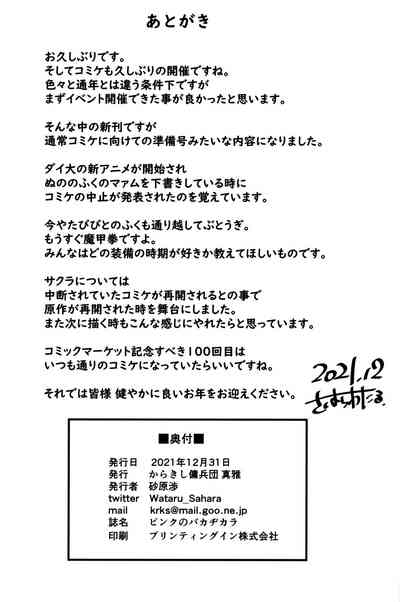 あとがき
お久しぶりです。
そしてコミケも久しぶりの開催ですね。
色々と通年とは違う条件下ですが
まずイベント開催できた事が良かったと思います。
そんな中の新刊ですが
通常コミケに向けての準備号みたいな内容になりました。
ダイ大の新アニメが開始され
ぬののふくのマァムを下書きしている時に
コミケの中止が発表されたのを覚えています。
今やたびびとのふくも通り越してぶとうぎ。
もうすぐ魔甲拳ですよ。
みんなはどの装備の時期が好きか教えてほしいものです。
サクラについては
中断されていたコミケが再開されるとの事で
原作が再開された時を舞台にしました。
また次に描く時もこんな感じにやれたらと思っています。
コミックマーケット記念すべき100回目は
いつも通りのコミケになっていたらいいですね。
それでは皆様 健やかに良いお年をお迎えください。
2021.12
さはらわたる
■奥付■
発行日 2021年12月31日
発行 からきし傭兵団 真雅
発行者 砂原渉
twitter Wataru_Sahara
mail krks@mail.goo.ne.jp
誌名 ピンクのバカヂカラ
印刷 プリンティングイン株式会社